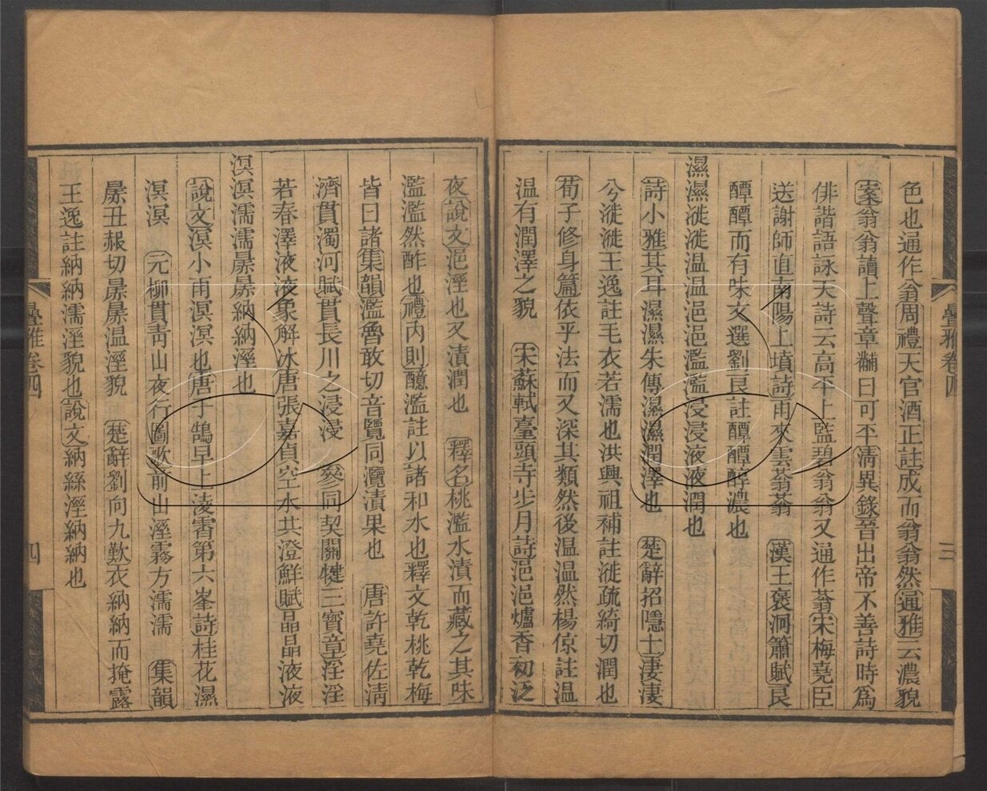 色也通作翁周禮天官酒正註成而翁翁然通雅云濃貌
案翁翁讀上聲章黼曰可平淸異錄晉出帝不善詩時爲
俳諧語詠天詩云高平上監碧翁翁又通作蓊宋梅堯臣
送謝師直南陽上墳詩雨來雲蓊蓊　漢王褒洞簫賦良
醰醰而有味文選劉良註醰醰醇濃也
濕濕漇漇温温浥浥濫濫浸浸液液潤也
詩小雅其耳濕濕朱傳濕濕潤澤也　楚辭招隱士淒淒
兮漇漇王逸註毛衣若濡也洪興祖補註漇疏綺切潤也
荀子修身篇依乎法而又深其類然後温温然楊倞註温
温有潤澤之貌　宋蘇軾臺頭寺步月詩浥浥爐香初泛
夜說文浥溼也又漬潤也　釋名桃濫水漬而藏之其味
濫濫然酢也禮內則醷濫註以諸和水也釋文乾桃乾梅
皆曰諸集韻濫魯敢切音覽同灠漬果也　唐許堯佐淸
濟貫濁河賦貫長川之浸浸　參同契關犍三寶章淫淫
若春澤液液象解冰唐張嘉貞空水共澄鮮賦晶晶液液
溟溟濡濡㬥㬥納納溼也
說文溟小雨溟溟也唐于鵠早上淩霄第六峯詩桂花濕
溟溟　元柳貫靑山夜行圖歌前出溼霧方濡濡　集韻
㬥丑赧切㬥㬥温溼貌　楚辭劉向九歎衣納納而掩露
王逸註納納濡溼貌也說文納絲溼納納也
疊雅卷四
三
疊雅卷四
四